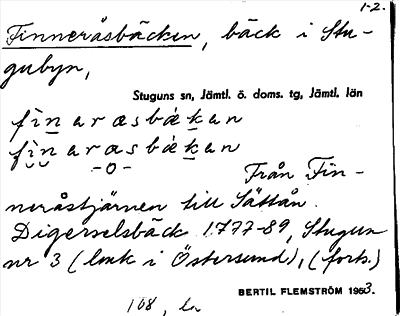 1-2.
Finneråsbäcken, bäck i Stu-
gubyn,
Stuguns sn, Jämtl. ö. doms. tg, Jämtl. län
fìnaræsbǽkan
fìnaræsbǽkan
-o- Från Fin-
neråstjärnen till Sättån.
Digerselsbäck 1777-89, Stugun
nr 3 (lmk i Östersund), (forts.)
BERTIL FLEMSTRÖM 1963.
108,